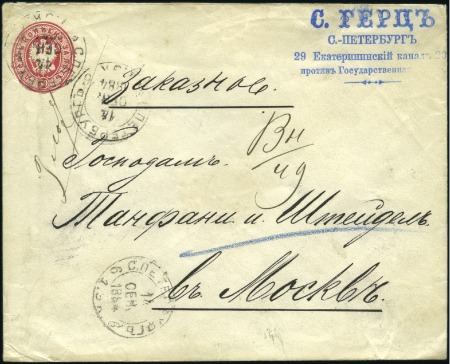 С. ГЕРЦЪ
С.-ПЕТЕРБУРГЪ
29 Екатерининскій каналъ
противъ Государственна
Заказное.
Вн
49
Господамъ.
Танфани и Штейдель
въ Москвѣ.
С.ПЕТЕРБУРГЪ
СЕН.
1884